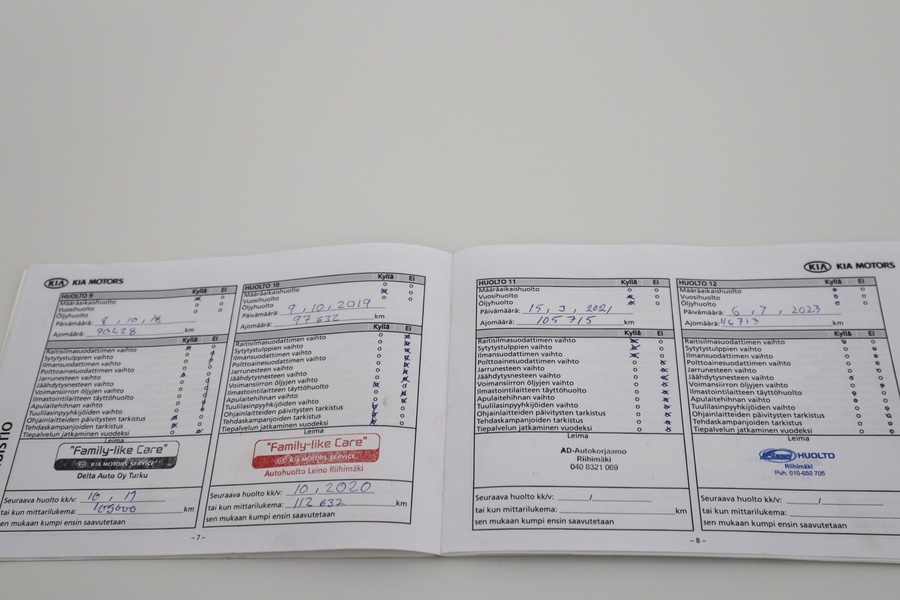 KIA KIA MOTORS
HUOLTO 9 Kyllä Ei
Määräaikaishuolto
Vuosihuolto
Öljyhuolto
Päivämäärä: 8, 10, 18
Ajomäärä: 90628 km
Kyllä Ei
Raitisilmasuodattimen vaihto
Sytytystulppien vaihto
Ilmansuodattimen vaihto
Polttoainesuodattimen vaihto
Jarrunesteen vaihto
Jäähdytysnesteen vaihto
Voimansiirron öljyjen vaihto
Ilmastointilaitteen täyttöhuolto
Apulaitehihnan vaihto
Tuulilasinpyyhkijöiden vaihto
Ohjainlaitteiden päivitysten tarkistus
Tehdaskampanjoiden tarkistus
Tiepalvelun jatkaminen vuodeksi
Leima
"Family-like Care"
KIA MOTORS SERVICE
Delta Auto Oy Turku
Seuraava huolto kk/v: 10, 19
tai kun mittarilukema: 105000 km
sen mukaan kumpi ensin saavutetaan
-7-
HUOLTO 10 Kyllä Ei
Määräaikaishuolto
Vuosihuolto
Öljyhuolto
Päivämäärä: 9, 10, 2019
Ajomäärä: 97 632 km
Kyllä Ei
Raitisilmasuodattimen vaihto
Sytytystulppien vaihto
Ilmansuodattimen vaihto
Polttoainesuodattimen vaihto
Jarrunesteen vaihto
Jäähdytysnesteen vaihto
Voimansiirron öljyjen vaihto
Ilmastointilaitteen täyttöhuolto
Apulaitehihnan vaihto
Tuulilasinpyyhkijöiden vaihto
Ohjainlaitteiden päivitysten tarkistus
Tehdaskampanjoiden tarkistus
Tiepalvelun jatkaminen vuodeksi
Leima
"Family-like Care"
KIA MOTORS SERVICE
Autohuolto Leino Riihimäki
Seuraava huolto kk/v: 10, 2020
tai kun mittarilukema: 112 632 km
sen mukaan kumpi ensin saavutetaan
HUOLTO 11 Kyllä Ei
Määräaikaishuolto
Vuosihuolto
Öljyhuolto
Päivämäärä: 15, 3, 2021
Ajomäärä: 105 715 km
Kyllä Ei
Raitisilmasuodattimen vaihto
Sytytystulppien vaihto
Ilmansuodattimen vaihto
Polttoainesuodattimen vaihto
Jarrunesteen vaihto
Jäähdytysnesteen vaihto
Voimansiirron öljyjen vaihto
Ilmastointilaitteen täyttöhuolto
Apulaitehihnan vaihto
Tuulilasinpyyhkijöiden vaihto
Ohjainlaitteiden päivitysten tarkistus
Tehdaskampanjoiden tarkistus
Tiepalvelun jatkaminen vuodeksi
Leima
AD-Autokorjaamo
Riihimäki
040 8321 069
Seuraava huolto kk/v: /
tai kun mittarilukema: km
sen mukaan kumpi ensin saavutetaan
KIA KIA MOTORS
HUOLTO 12 Kyllä Ei
Määräaikaishuolto
Vuosihuolto
Öljyhuolto
Päivämäärä: 6, 7, 2023
Ajomäärä: km
Kyllä Ei
Raitisilmasuodattimen vaihto
Sytytystulppien vaihto
Ilmansuodattimen vaihto
Polttoainesuodattimen vaihto
Jarrunesteen vaihto
Jäähdytysnesteen vaihto
Voimansiirron öljyjen vaihto
Ilmastointilaitteen täyttöhuolto
Apulaitehihnan vaihto
Tuulilasinpyyhkijöiden vaihto
Ohjainlaitteiden päivitysten tarkistus
Tehdaskampanjoiden tarkistus
Tiepalvelun jatkaminen vuodeksi
Leima
HUOLTO
Riihimäki
Puh. 010-850 705
Seuraava huolto kk/v: /
tai kun mittarilukema:
sen mukaan kumpi ensin saavutetaan
-8-